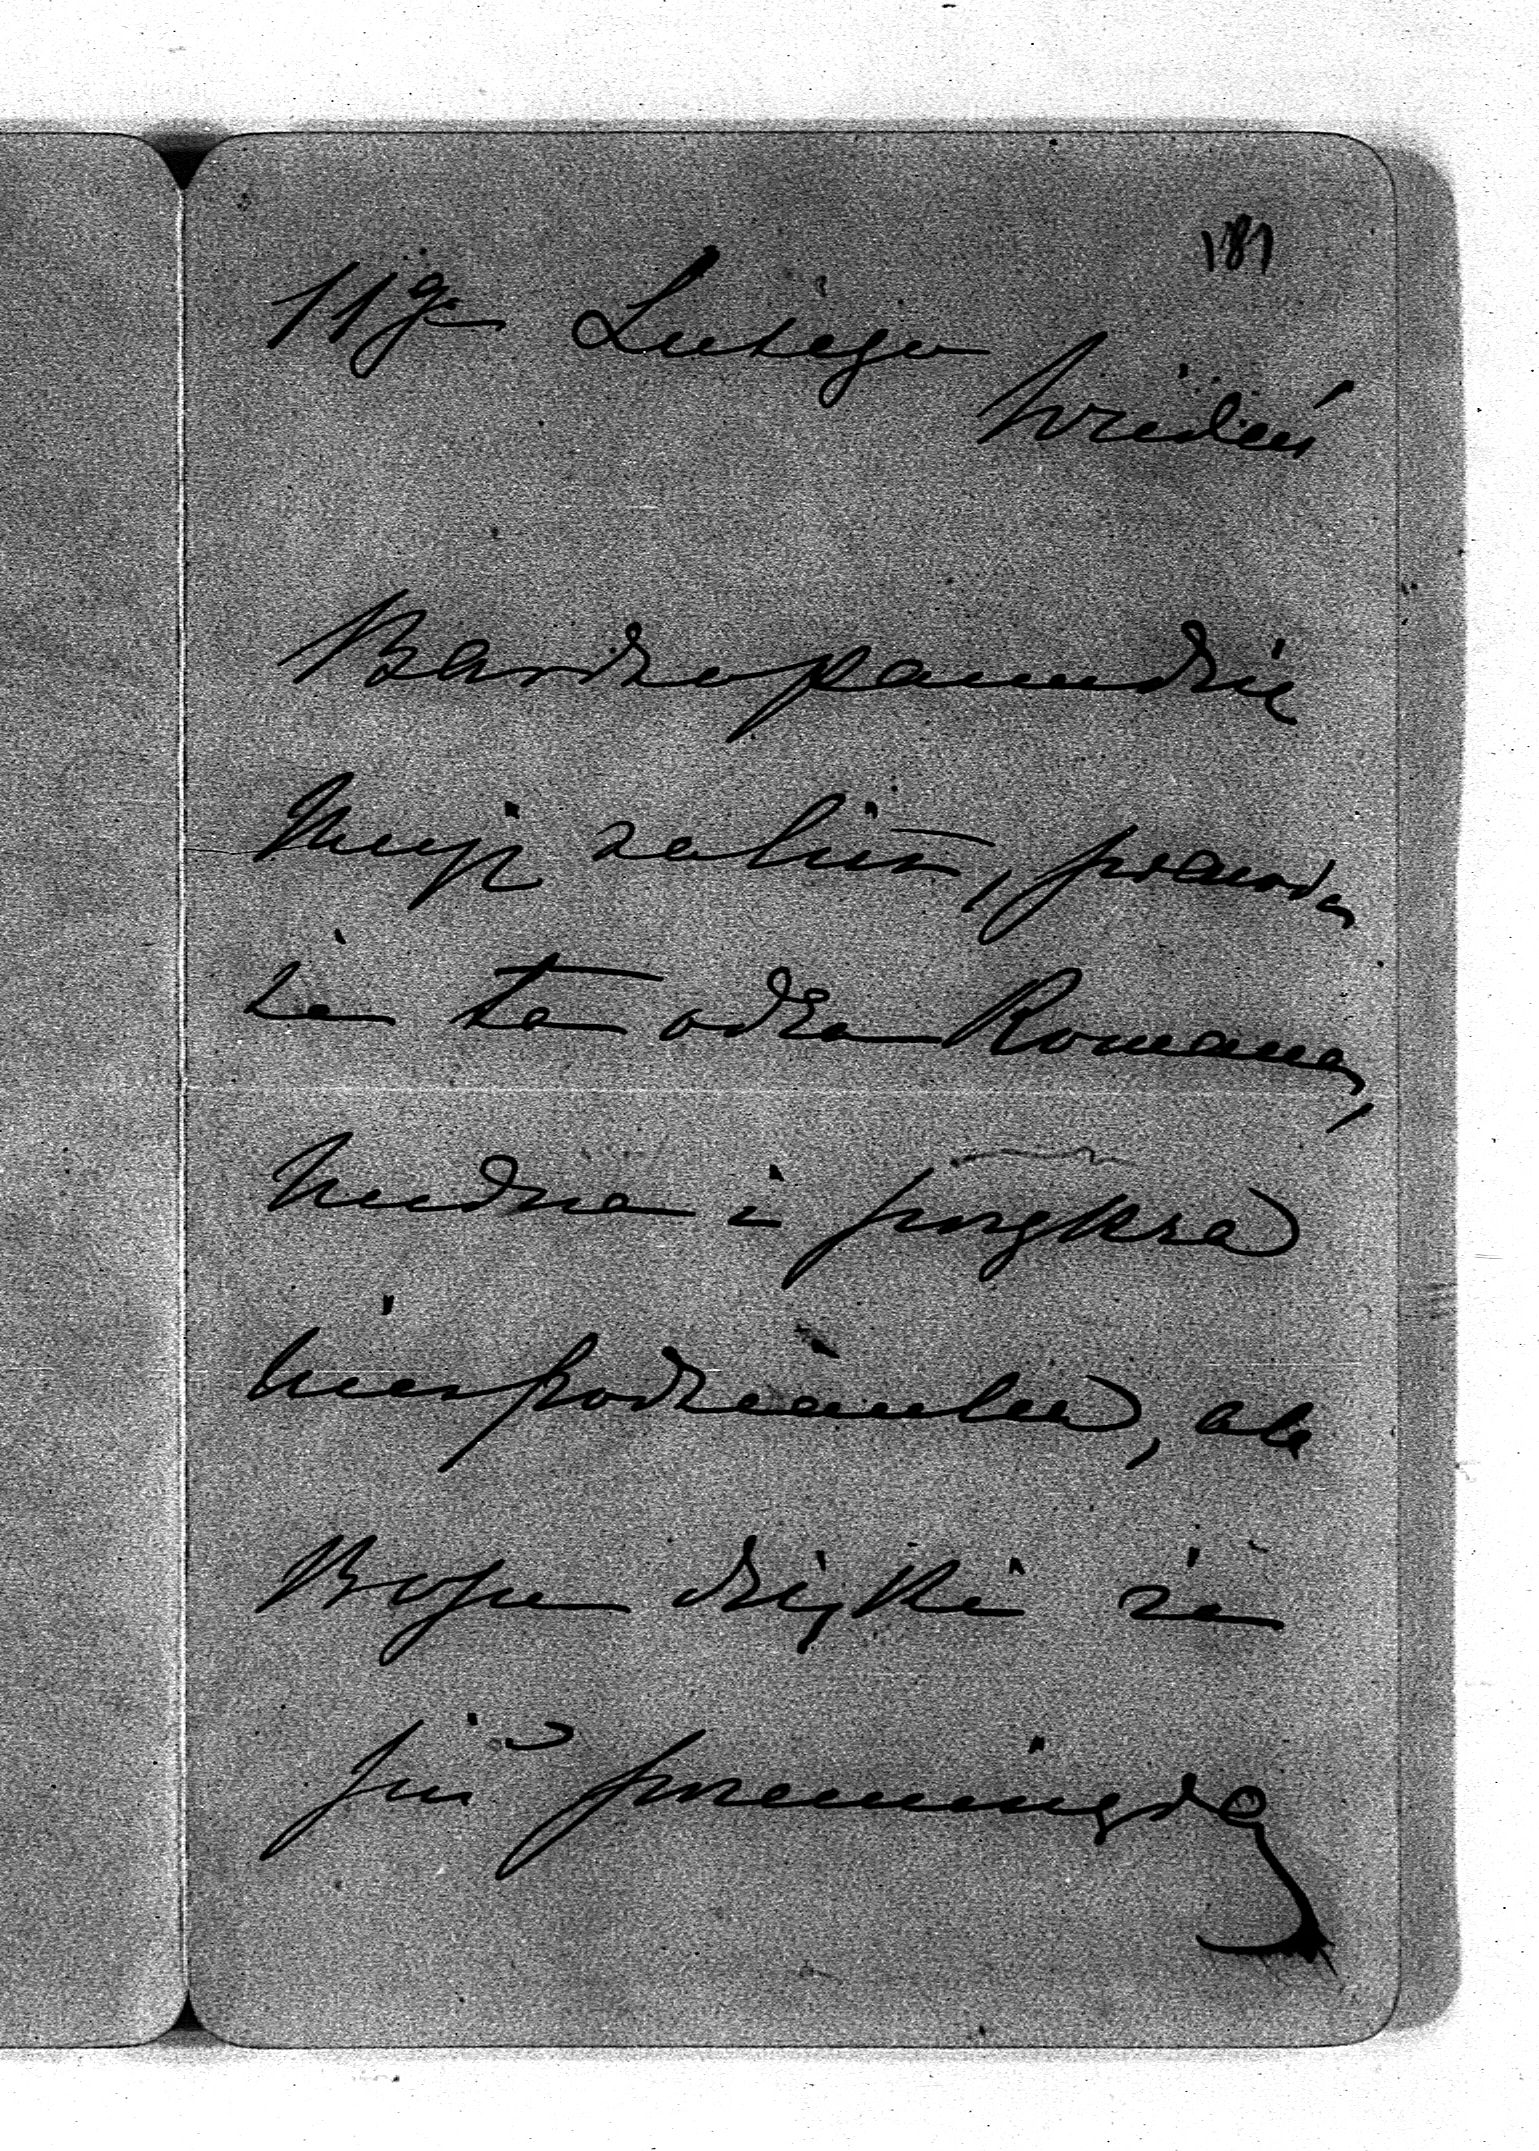 181
11go Lutego
Wiedeń
Bardzo panu dzię
kuję za list, prawda
że ta odra Romana,
nudna i przykra
niespodzianka, ale
Bogu dzięki że
już przeminęła